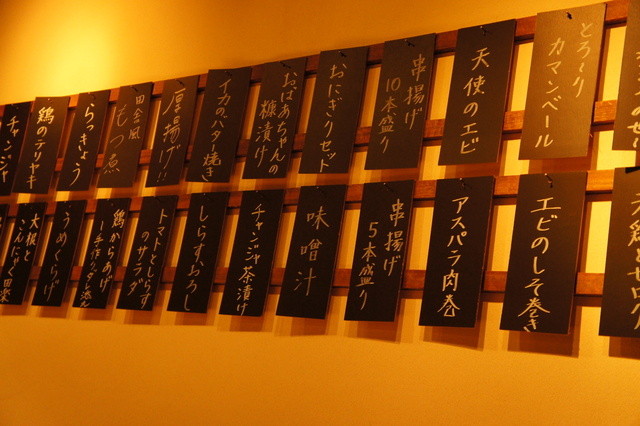 とろ〜り
カマンベール
天使のエビ
串揚げ
10本盛り
おにぎりセット
おばあちゃんの
糠漬け
イカのバター焼き
厚揚げ!!
田舎風
もつ煮
らっきょう
鶏のテリヤキ
チャンジャ
エビのしそ巻き
アスパラ肉巻
串揚げ
5本盛り
味噌汁
チャンジャ茶漬け
しらすおろし
トマトとしらす
のサラダ
鶏からあげ
うめくらげ
大根と
こんにゃく田楽